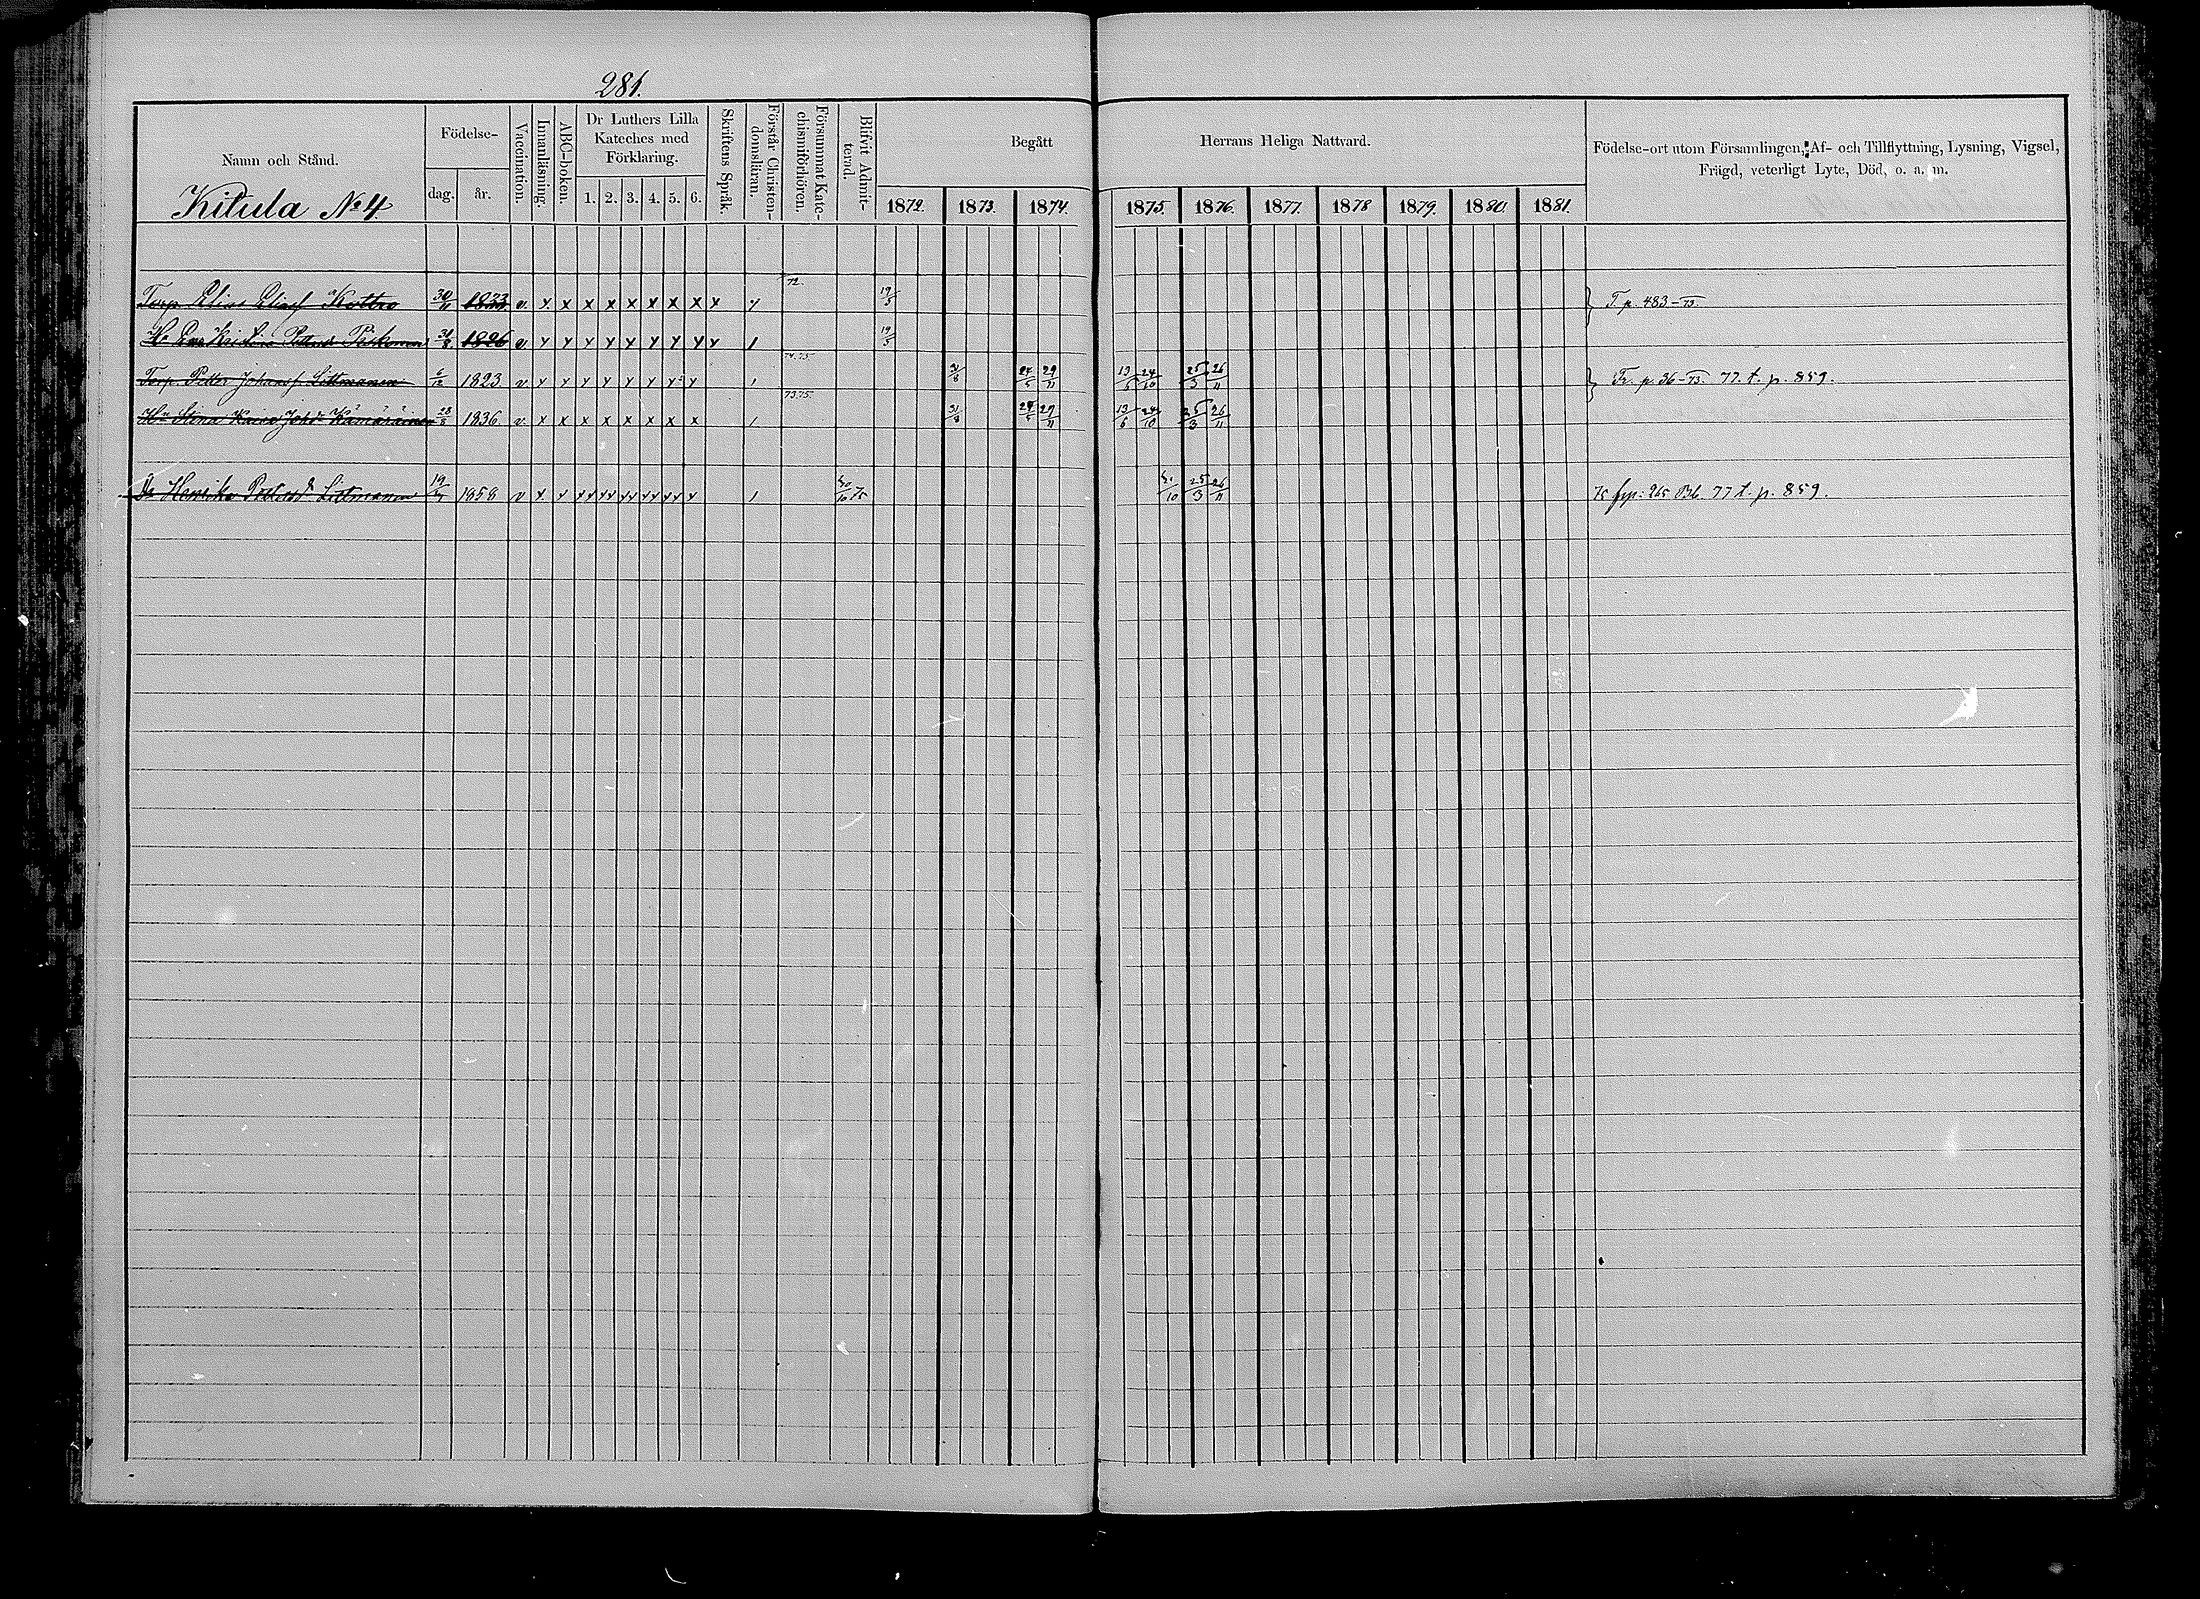 281.
Namn och Stånd.
Kitula No 4
Födelse-
dag. år.
Vaccination.
Innanläsning.
ABC-boken.
Dr Luthers Lilla
Kateches med
Förklaring.
1. 2. 3. 4. 5. 6.
Skriftens Språk.
Förstår Christen-
domsläran.
Försummat Kate-
chismiförhören.
Blifvit Admit-
terad.
Begått Herrans Heliga Nattvard.
1872. 1873. 1874. 1875. 1876. 1877. 1878 1879. 1880. 1881.
Födelse-ort utom Församlingen, Af- och Tillflyttning, Lysning, Vigsel,
Frägd, veterligt Lyte, Död, o. a. m.
Torp. Elias Eliasf Kottro 30/11 1833 v. x x x x x x x x x 72. 19/5 T. p. 483-73.
Hu Eva Kristina Petterd Piskonen 31/8 1826 v x x x x x x x x x 19/5
Torp. Petter Johansf Littmanen 6/12 1823 v x x x x x x x x 74.75 31/8 24/5 29/11 13/6 24/10 25/3 26/11 Fr. p. 36-73. 77. t. p. 859.
Hu Stina Kaisa Johd Kämäräinen 28/8 1836. v. x x x x x x x x 73.75. 31/8 24/5 29/11 13/6 24/10 25/3 26/11
Dr Henrika Pettersd Littmanen 19/7 1858 v x x xx xx xx xx xx x 75 25/3 26/11 75 fr. p. 265 Bb. 77 t. p. 859.